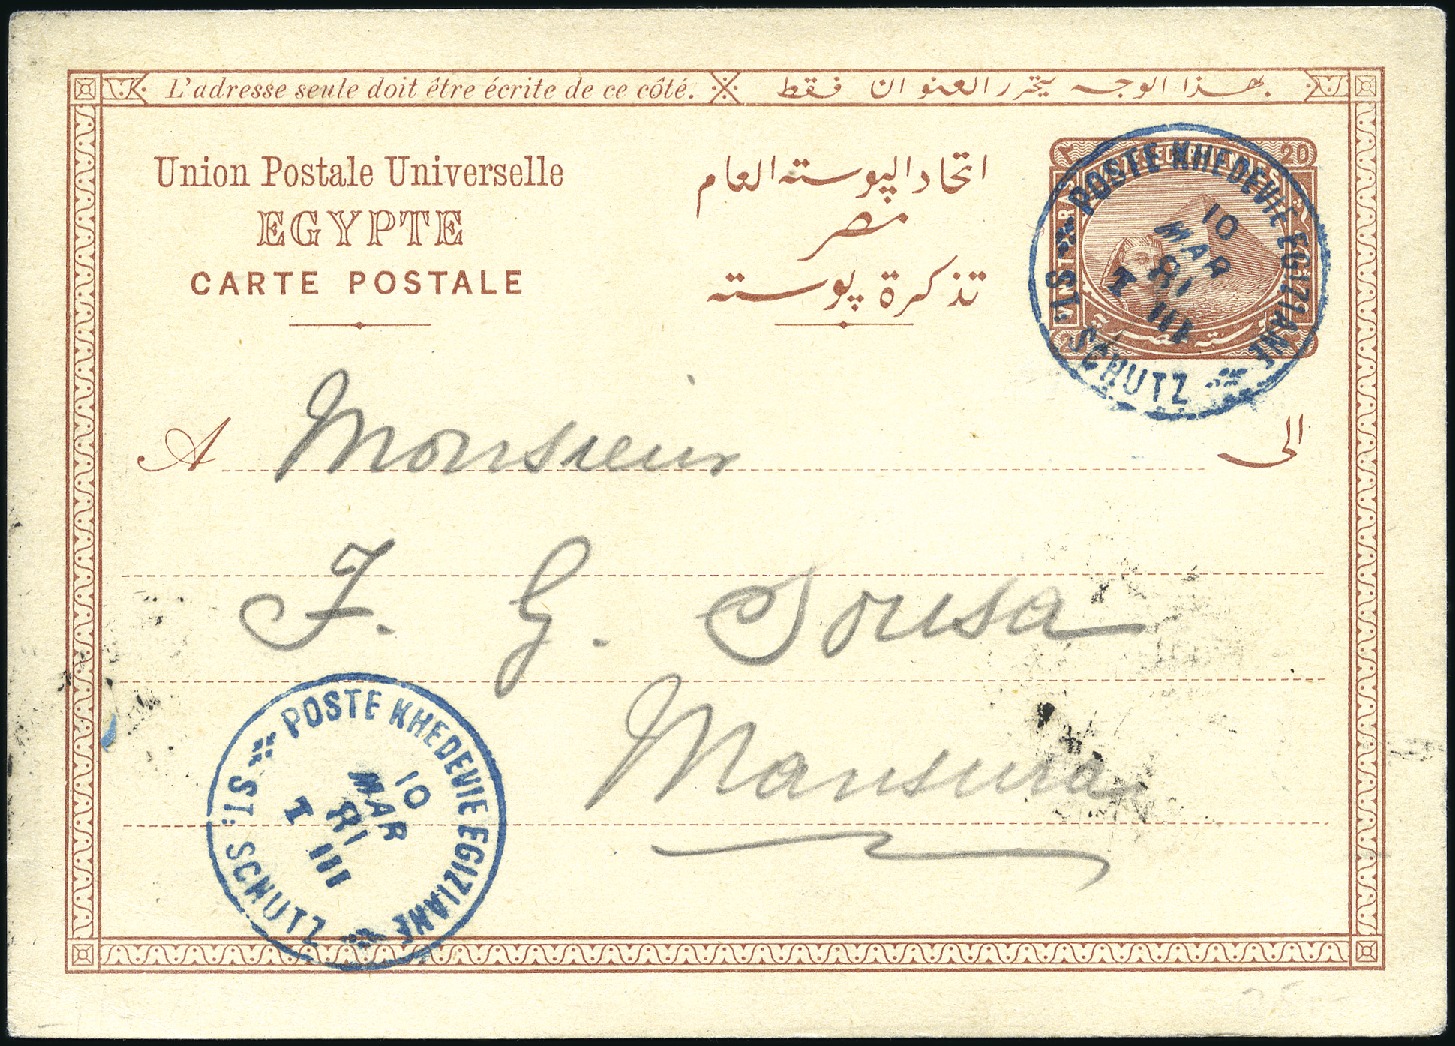 L'adresse seule doit être écrite de ce côté. بهذا الوجه يتحرر العنوان فقط
Union Postale Universelle
EGYPTE
CARTE POSTALE
اتحاد البوسته العام
مصر
تذكرة بوسته
20
POSTE KHEDEVIE EGIZIANE
ST. SCHUTZ
10
MAR
81
T III
A Monsieur الى
F. G. Sousa
Mansura
POSTE KHEDEVIE EGIZIANE
ST. SCHUTZ
10
MAR
81
T III